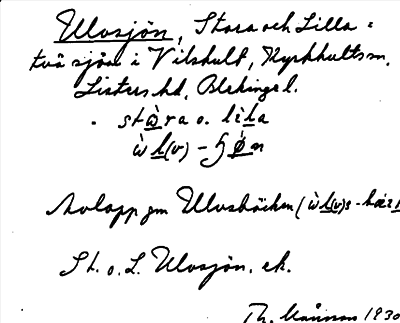 Ulvsjön, Stora och Lilla:
två sjöar i Vilshult, Kyrkhults sn,
Listers hd, Blekinge l.
stà̱ra o. lìḻa
ẁḻ(v) - ɧø̱̀n
Avlopp gm Ulvsbäcken (ẁḻ(v)s -
St. o. L. Ulvsjön. ek.
Th. 1930